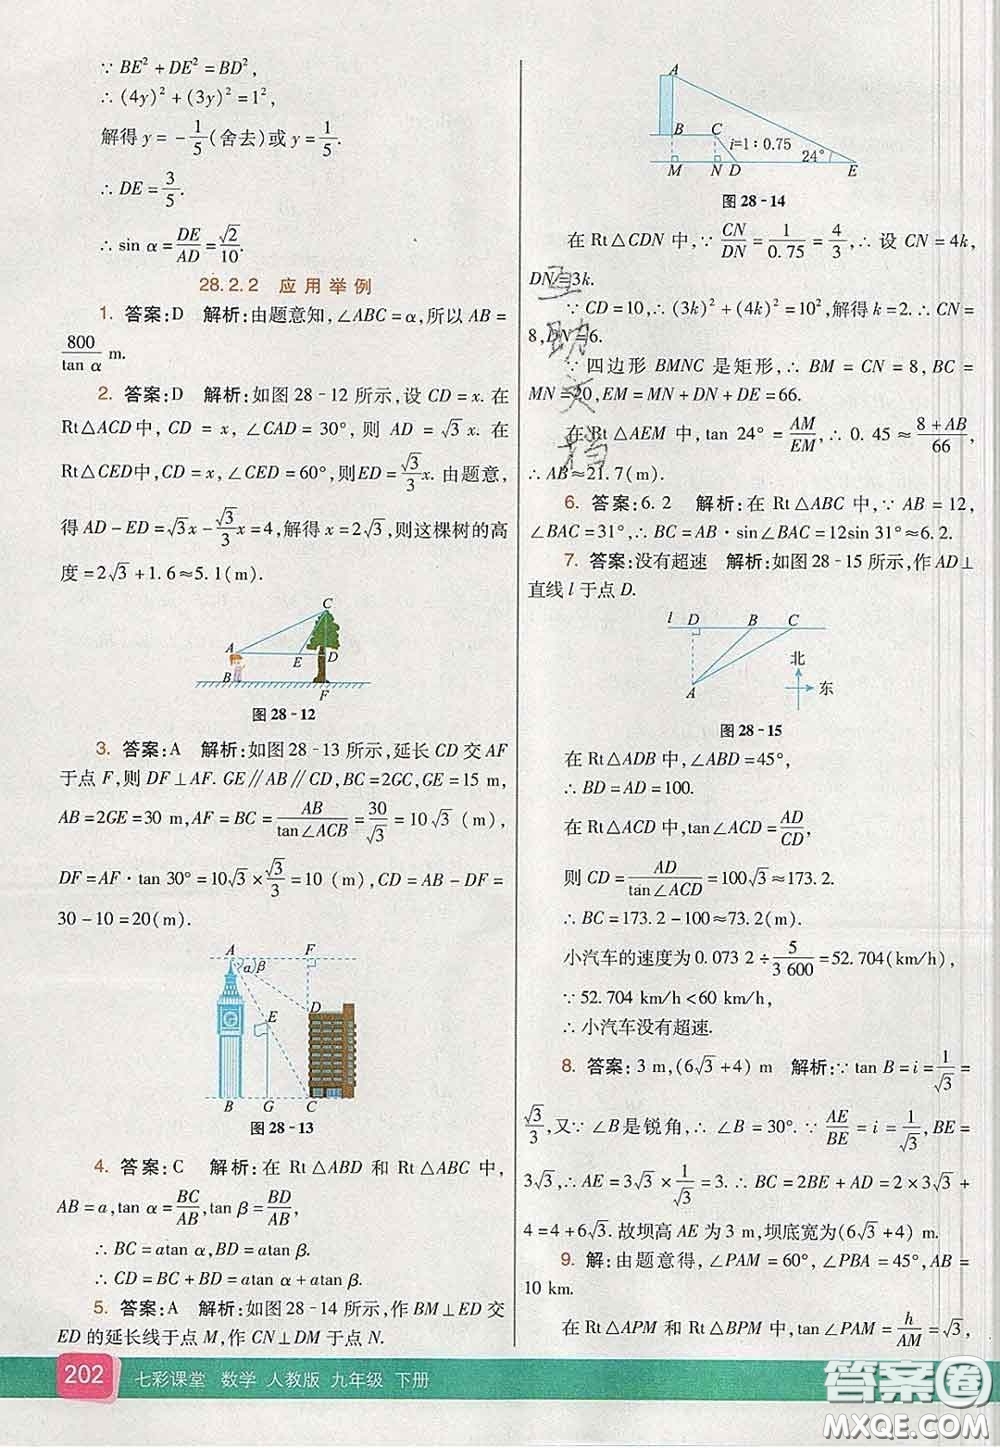 ∵ BE²+DE²=BD²,
∴ (4y)²+(3y)²=1²,
解得 y=-1/5(舍去)或 y=1/5.
∴ DE=3/5.
∴ sin α=DE/AD=√2/10.
28.2.2 应用举例
1. 答案:D 解析:由题意知,∠ABC=α,所以 AB=
800/tan α m.
2. 答案:D 解析:如图 28-12 所示,设 CD=x. 在
Rt△ACD中, CD=x, ∠CAD=30°, 则 AD=√3x. 在
Rt△CED中,CD=x,∠CED=60°,则ED=√3/3x. 由题意,
得 AD-ED=√3x-√3/3x=4,解得 x=2√3,则这棵树的高
度=2√3+1.6≈5.1(m).
A
B
C
E
D
F
图 28-12
3. 答案:A 解析:如图 28-13 所示,延长 CD 交 AF
于点 F,则 DF⊥AF. GE∥AB∥CD,BC=2GC,GE=15 m,
AB=2GE=30 m,AF=BC=AB/tan∠ACB=30/√3=10√3 (m),
DF=AF·tan 30°=10√3×√3/3=10 (m),CD=AB-DF=
30-10=20(m).
A
F
α
β
D
E
B
G
C
图 28-13
4. 答案:C 解析:在 Rt△ABD 和 Rt△ABC 中,
AB=a,tan α=BC/AB,tan β=BD/AB,
∴ BC=atan α,BD=atan β.
∴ CD=BC+BD=atan α+atan β.
5. 答案:A 解析:如图 28-14 所示,作 BM⊥ED 交
ED 的延长线于点 M,作 CN⊥DM 于点 N.
A
B
C
i=1:0.75
24°
M
N
D
E
图 28-14
在 Rt△CDN 中,∵ CN/DN=1/0.75=4/3,∴ 设 CN=4k,
DN=3k.
∵ CD=10,∴ (3k)²+(4k)²=10²,解得 k=2. ∴ CN=
8,DN=6.
∵ 四边形 BMNC 是矩形,∴ BM=CN=8,BC=
MN=20,EM=MN+DN+DE=66.
在 Rt△AEM 中,tan 24°=AM/EM,∴ 0.45≈8+AB/66,
∴ AB≈21.7(m).
6. 答案:6.2 解析:在 Rt△ABC 中,∵ AB=12,
∠BAC=31°,∴ BC=AB·sin∠BAC=12sin 31°≈6.2.
7. 答案:没有超速 解析:如图 28-15 所示,作 AD⊥
直线 l 于点 D.
l
D
B
C
北
东
A
图 28-15
在 Rt△ADB 中,∠ABD=45°,
∴ BD=AD=100.
在 Rt△ACD 中,tan∠ACD=AD/CD,
则 CD=AD/tan∠ACD=100√3≈173.2.
∴ BC=173.2-100≈73.2(m).
小汽车的速度为 0.073 2÷5/3 600=52.704(km/h),
∵ 52.704 km/h<60 km/h,
∴ 小汽车没有超速.
8. 答案:3 m,(6√3+4) m 解析:∵ tan B=i=1/√3=
√3/3,又∵ ∠B 是锐角,∴ ∠B=30°. ∵ AE/BE=i=1/√3,BE=
3√3,∴ AE=3√3×1/√3=3. ∴ BC=2BE+AD=2×3√3+
4=4+6√3. 故坝高 AE 为 3 m,坝底宽为(6√3+4) m.
9. 解:由题意得,∠PAM=60°,∠PBA=45°,AB=
10 km.
在 Rt△APM 和 Rt△BPM 中,tan∠PAM=h/AM=√3,
互助文档
202
七彩课堂 数学 人教版 九年级 下册
答案圈
MXQE.COM